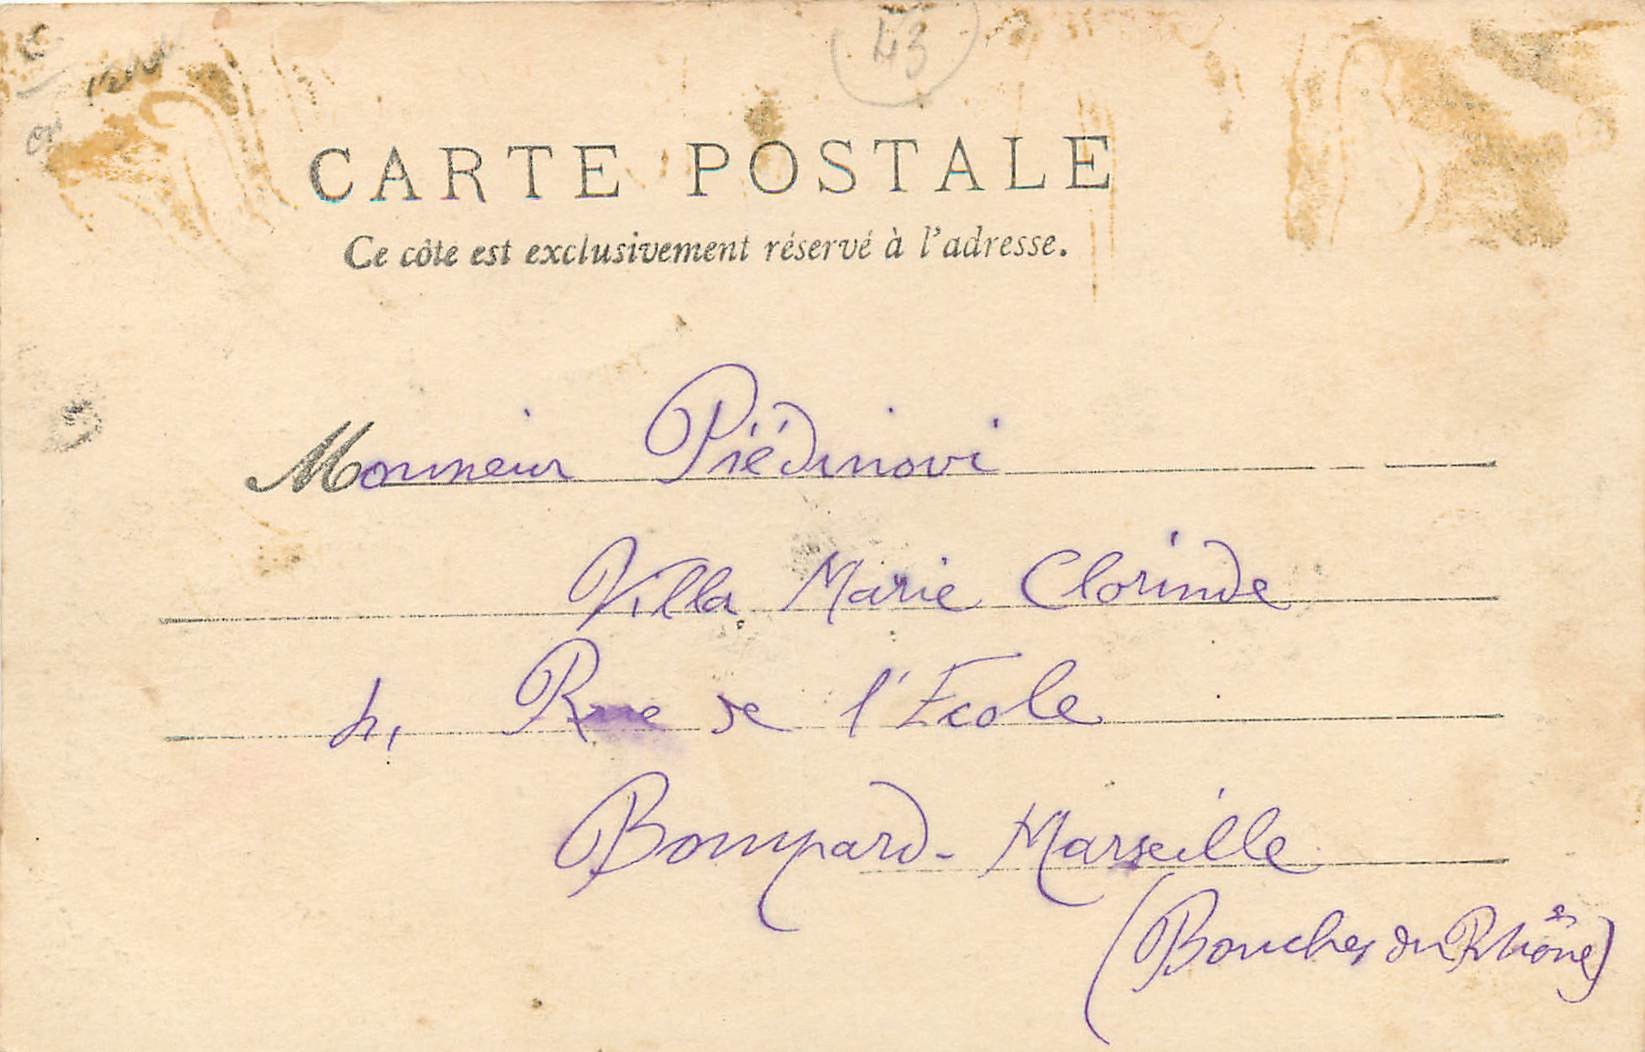 43
CARTE POSTALE
Ce côté est exclusivement réservé à l'adresse.
Monsieur Piédinovi
Villa Marie Clorinde
4, Rue de l'Ecole
Bompard - Marseille
(Bouches du Rhône)